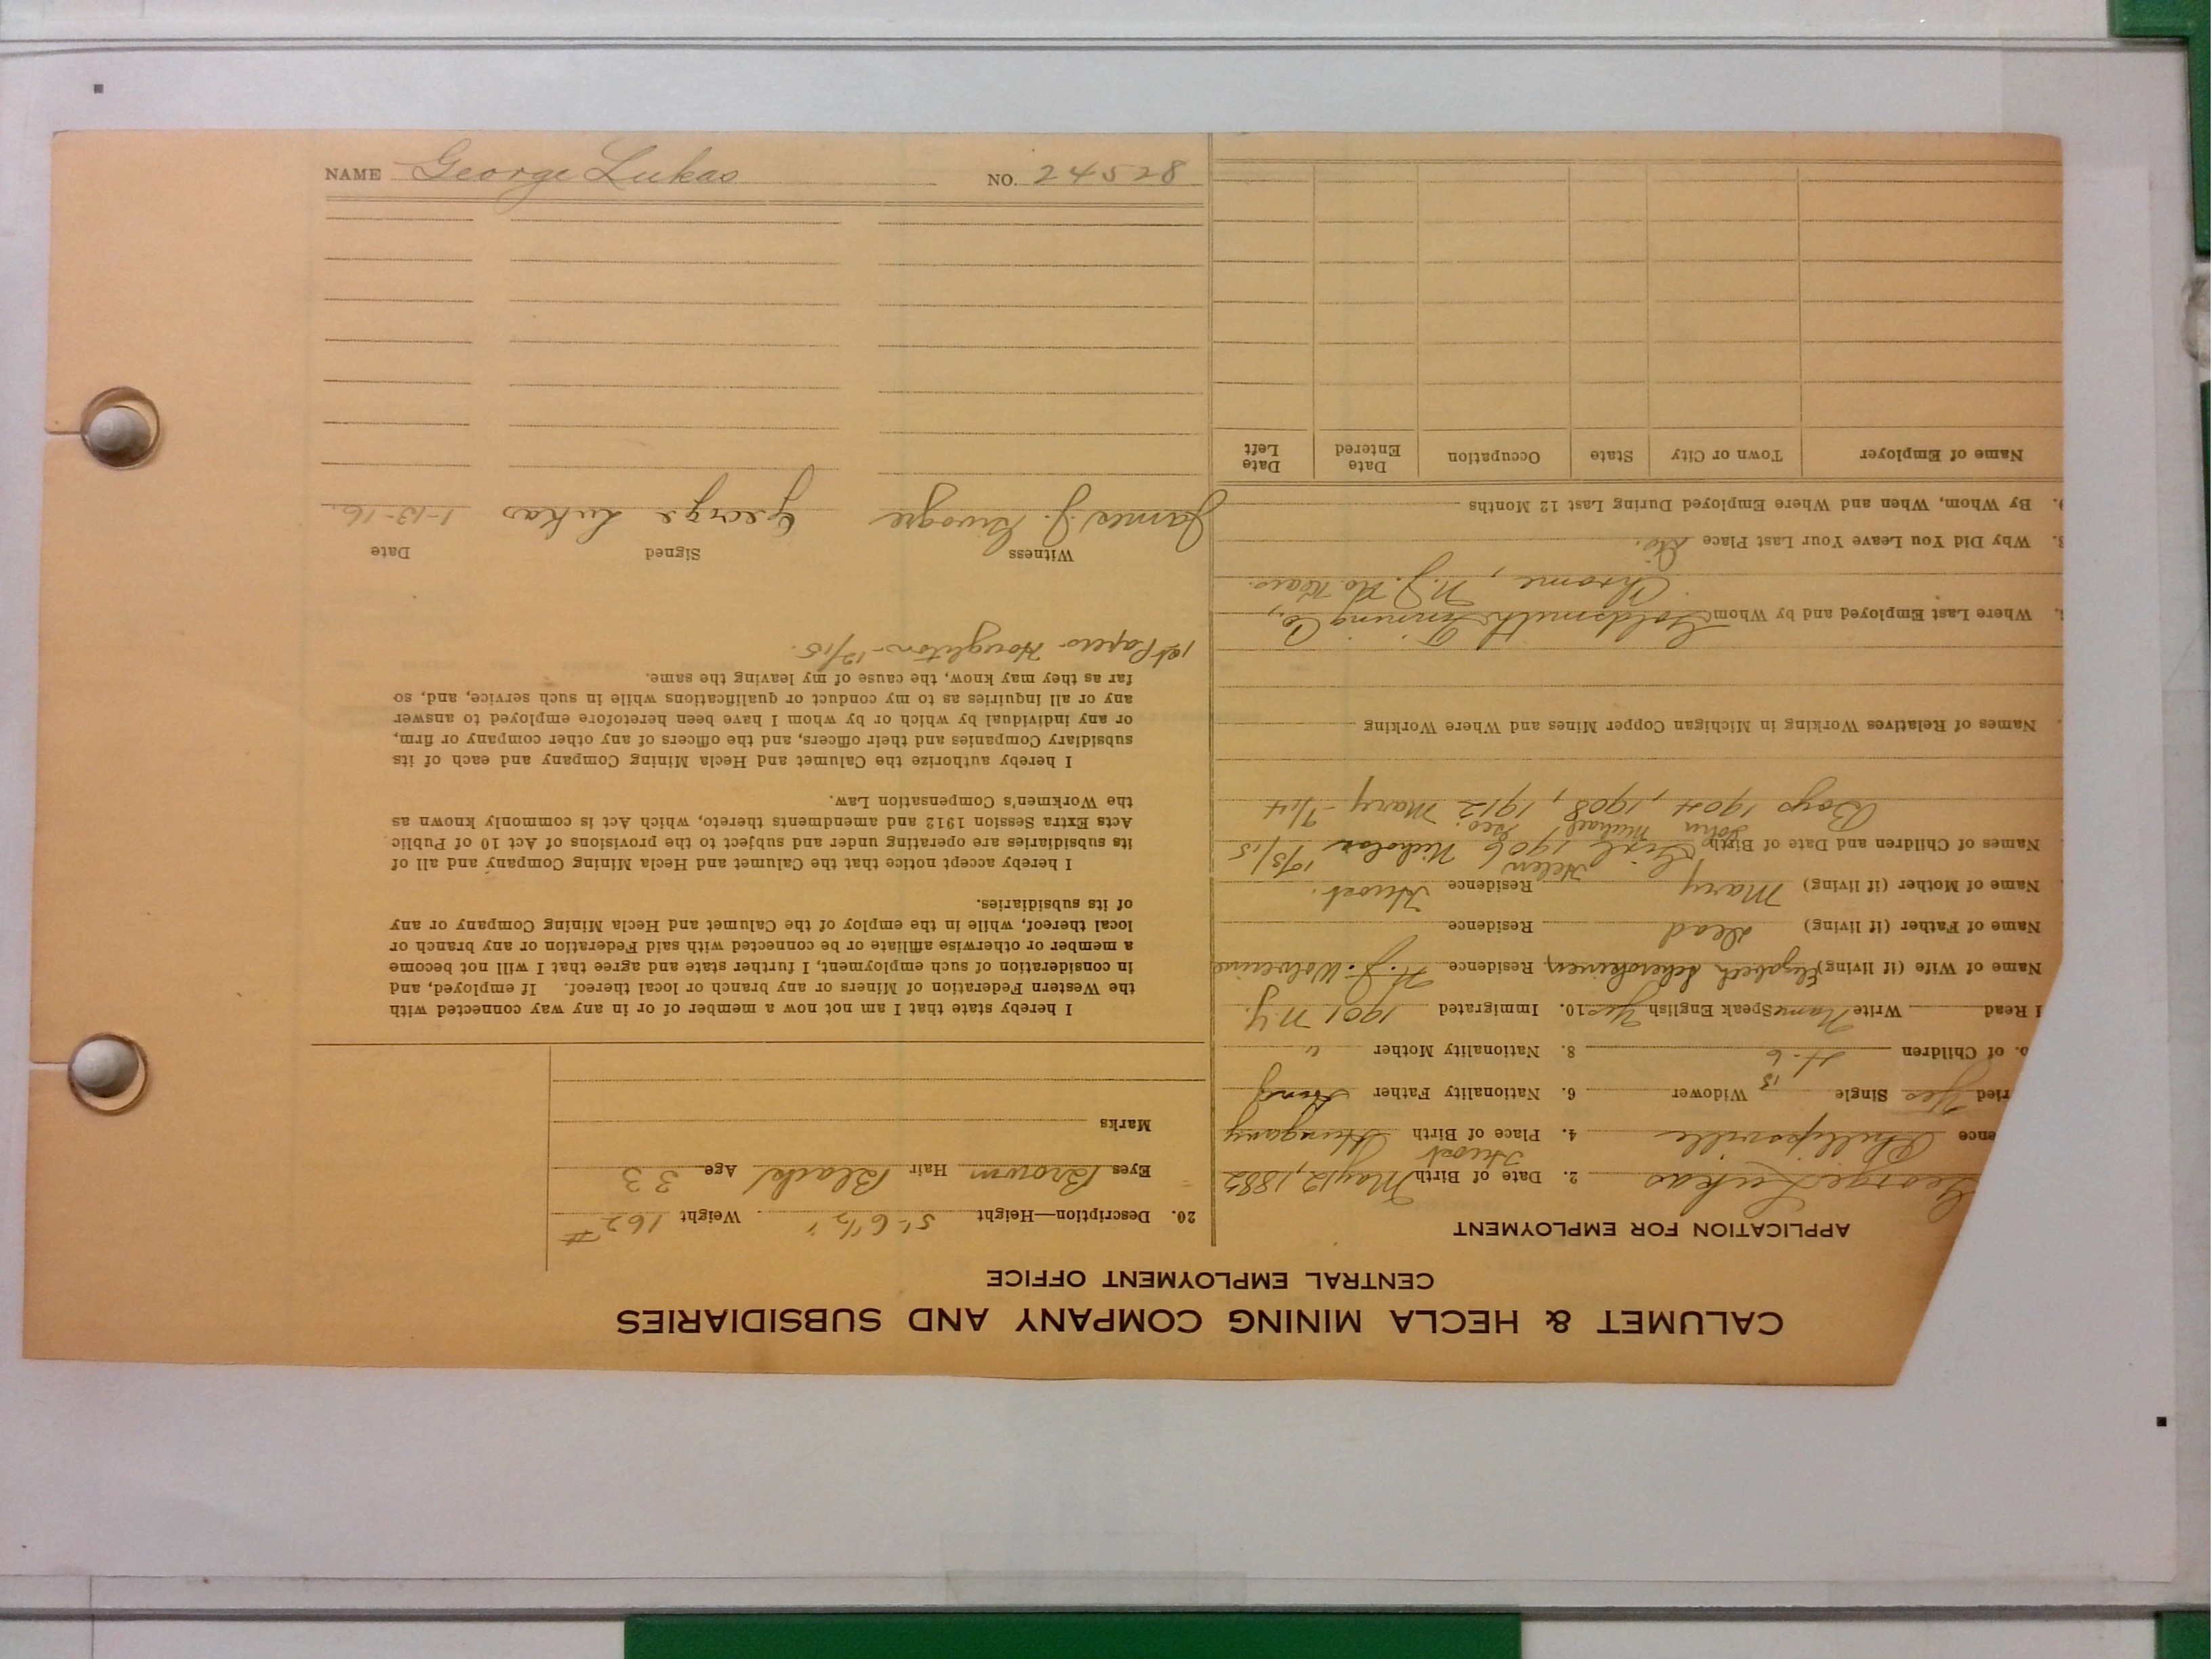 NAME George Lukas NO. 24528
CALUMET & HECLA MINING COMPANY AND SUBSIDIARIES
CENTRAL EMPLOYMENT OFFICE
APPLICATION FOR EMPLOYMENT
George Lukas 2. Date of Birth May 12, 1882
ence Phillipsville 4. Place of Birth Hungary
ried Yes Single Widower 6. Nationality Father
o. of Children 8. Nationality Mother "
I Read Write Name Speak English Yes 10. Immigrated 1901 N.Y.
Name of Wife (if living) Elizabeth Residence
Name of Father (if living) Dead Residence
Name of Mother (if living) Mary Residence
Names of Children and Date of Birth Girl Helen 1906 Nicholas
John Michael Geo.
Boys 1904, 1908, 1912 Mary - 7/14
Names of Relatives Working in Michigan Copper Mines and Where Working
Where Last Employed and by Whom Goldsmith Tinning Co.,
Chrome, N.J.
Why Did You Leave Your Last Place
9. By Whom, When and Where Employed During Last 12 Months
Name of Employer Town or City State Occupation Date Entered Date Left
20. Description—Height 5'-6 1/2" Weight 162#
Eyes Brown Hair Black Age 33
Marks
I hereby state that I am not now a member of or in any way connected with
the Western Federation of Miners or any branch or local thereof. If employed, and
in consideration of such employment, I further state and agree that I will not become
a member or otherwise affiliate or be connected with said Federation or any branch or
local thereof, while in the employ of the Calumet and Hecla Mining Company or any
of its subsidiaries.
I hereby accept notice that the Calumet and Hecla Mining Company and all of
its subsidiaries are operating under and subject to the provisions of Act 10 of Public
Acts Extra Session 1912 and amendments thereto, which Act is commonly known as
the Workmen's Compensation Law.
I hereby authorize the Calumet and Hecla Mining Company and each of its
subsidiary Companies and their officers, and the officers of any other company or firm,
or any individual by which or by whom I have been heretofore employed to answer
any or all inquiries as to my conduct or qualifications while in such service, and, so
far as they may know, the cause of my leaving the same.
1st Papers Houghton - 12/15.
Witness Signed Date
James J. George Lukas 1-13-16.